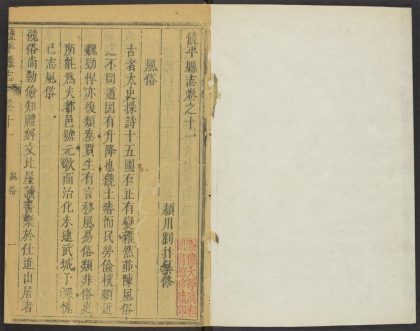 饒平縣志卷之十一
潁川劉抃纂修
風俗
古者太史採詩十五國有正有變雖然並陳風俗
之不同道固有升降也饒土瘠而民勞儉樸頗近
魏勁悍亦後類秦賈生有言移風易俗類非俗吏
所能為夫都邑號元歌而治化未遠武城了深愧
已志風俗
饒俗尚勤儉知禮好文比屋讀書樂於仕進山居者
饒平縣志 卷十一 風俗 一